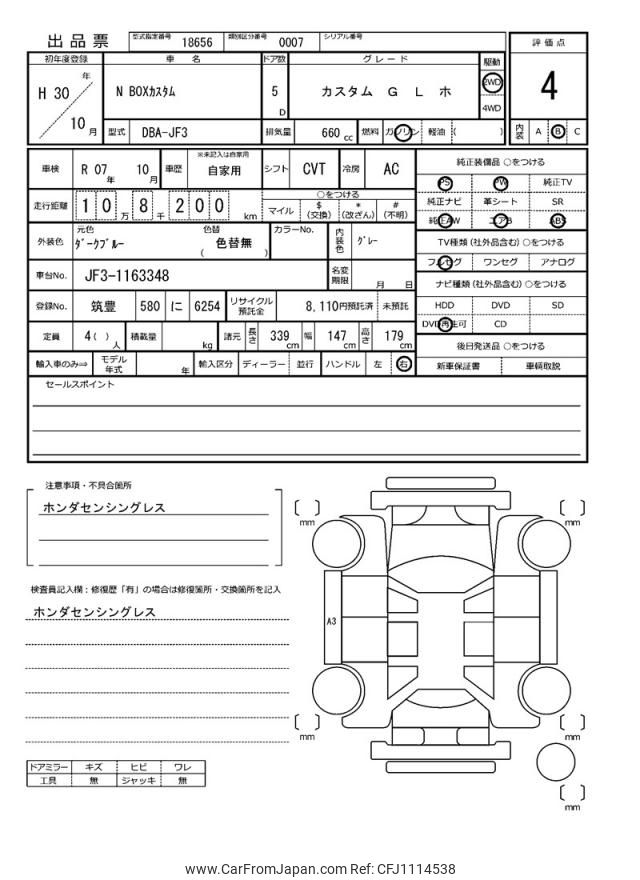 出品票 型式指定番号 18656 類別区分番号 0007 シリアル番号
評価点
4
内装 A B C
初年度登録 車名 ドア数 グレード 駆動
H 30 年 10 月 N BOXカスタム 5 D カスタム G L ホ 2WD 4WD
型式 DBA-JF3 排気量 660 cc 燃料 ガソリン 軽油 ( )
車検 R 07 年 10 月 車歴 ※未記入は自家用 自家用 シフト CVT 冷房 AC
走行距離 1 0 万 8 千 2 0 0 km ○をつける
マイル $ (交換) * (改ざん) # (不明)
外装色 元色 ダークブルー 色替 ( 色替無 ) カラーNo. 内装色 グレー
車台No. JF3-1163348 名変期限 月 日
登録No. 筑豊 580 に 6254 リサイクル預託金 8,110円預託済 未預託
定員 4 ( ) 人 積載量 kg 諸元 長さ 339 cm 幅 147 cm 高さ 179 cm
輸入車のみ⇒ モデル年式 年 輸入区分 ディーラー 並行 ハンドル 左 右
純正装備品 ○をつける
PS PW 純正TV
純正ナビ 革シート SR
純正AW エアB ABS
TV種類 (社外品含む) ○をつける
フルセグ ワンセグ アナログ
ナビ種類 (社外品含む) ○をつける
HDD DVD SD
DVD再生可 CD
後日発送品 ○をつける
新車保証書 車輌取説
セールスポイント
注意事項・不具合箇所
ホンダセンシングレス
検査員記入欄：修復歴「有」の場合は修復箇所・交換箇所を記入
ホンダセンシングレス
mm mm
A3
mm mm
mm
ドアミラー キズ ヒビ ワレ
工具 無 ジャッキ 無
www.CarFromJapan.com Ref: CFJ1114538